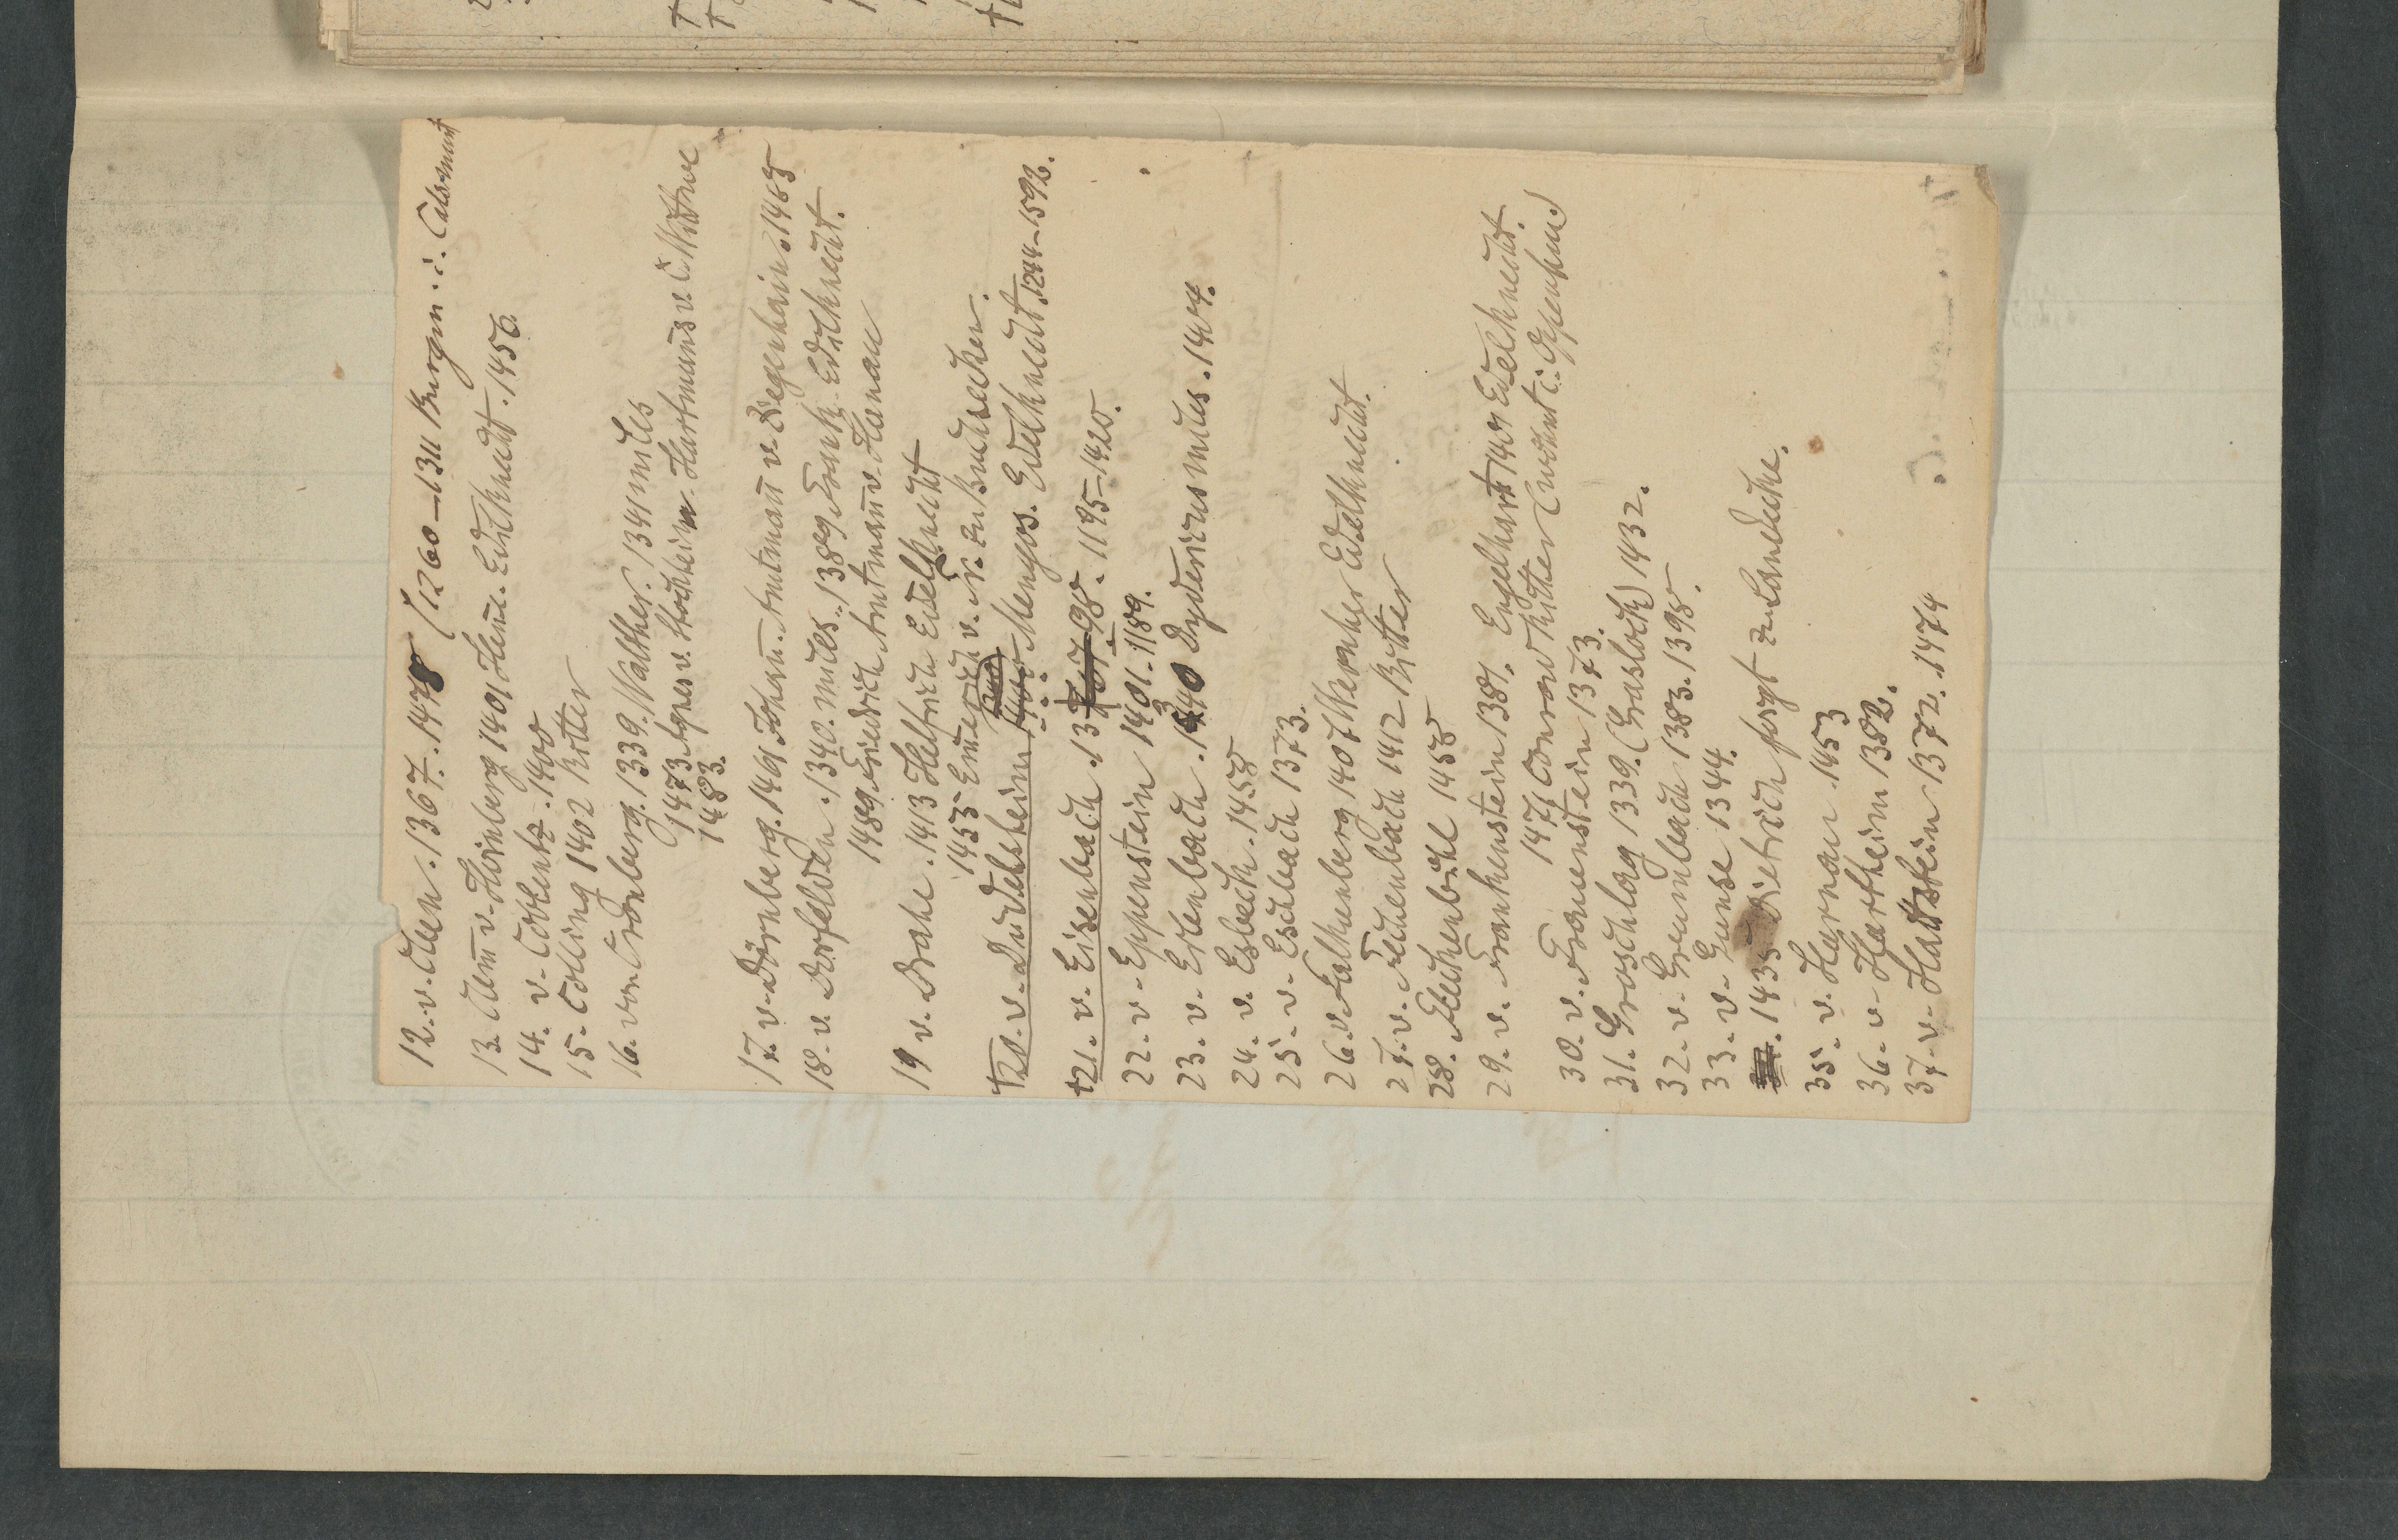 12. v. Cleen. 1367. 1478 (1260–1311 Burgm. i. Calsmunt
13. Clem v. Hoinberg 1401 Henn. Edelknecht. 1456.
14. v. Coblentz. 1400
15. Colling 1402 Ritter
16. von Cronberg. 1339. Walther. 1341 miles
1473 Agnes v. Stockheim. Hartmanns v. C. Wittwe
1483.
17. v. Dörnberg. 1461 Johann. Amtmañ v. Ziegenhain. 1465
18. v. Dorfelden. 1340. miles. 1389 Frank Edelknecht.
1489 Friedrich Amtmañ v. Hanau
19 v. Drahe. 1413 Helfrich Edelknecht
1455 v. N. zu Buchsecken.
†20. v. Dudelsheim Mengos. Edelknecht. 1244–1592.
†21. v. Eisenbach. 1195–1420.
22. v. Eppenstein 1401. 1189.
23. v. Erlenbach. Dydericus miles. 1404.
24. v. Esbech. 1458
25. v. Eschbach 1373.
26. v. Falkenberg 1407 Wernher Edelknecht.
27. v. Fechenbach 1412 Ritter
28. Fleckenbühl 1458
29. v. Frankenstein 1381. Engelhart 1401 Edelknecht.
1471 Conrad Ritter (wohnt i. Oppenheim)
30. v. Frauenstein 1373.
31. Groschlag 1339. (Graslock) 1432.
32. v. Grumbach 1383. 1398.
33. v. Gunse 1344.
1435 Dietrich sagt
35. v. Harnau. 1453
36. v. Hartheim 1382.
37. v. Hattstein 1372. 1474